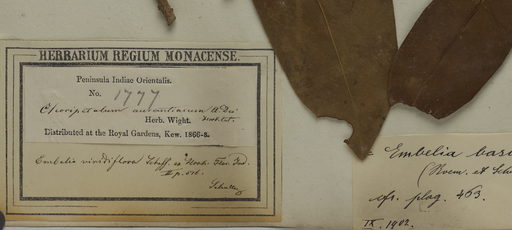 HERBARIUM REGIUM MONACENSE.
Peninsula Indiae Orientalis.
No. 1777
Choripetalum aurantiacum A. DC
Herb. Wight.
Distributed at the Royal Gardens, Kew. 1866-8.
Embelia viridiflora Scheff. ex Hook. Flor. Ind.
Embelia basa
(Roem. et Schu
cfr. plag. 463.
IX. 1902.